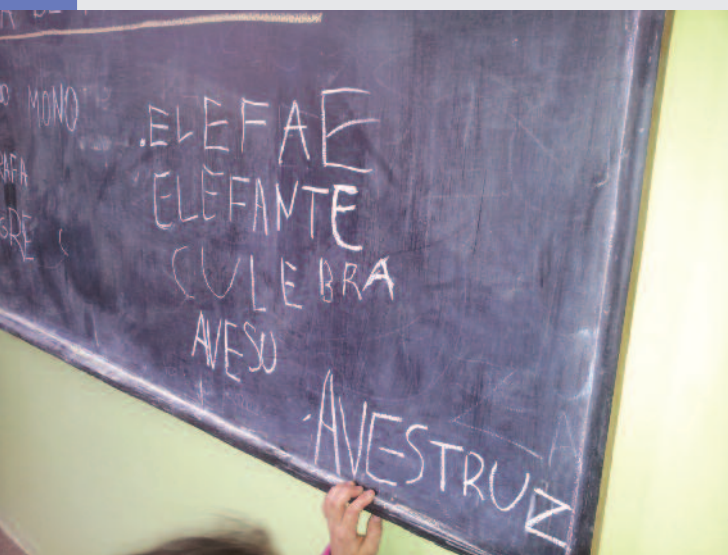 MONO
.ELEFAE
ELEFANTE
CULEBRA
AVESU
.AVESTRUZ